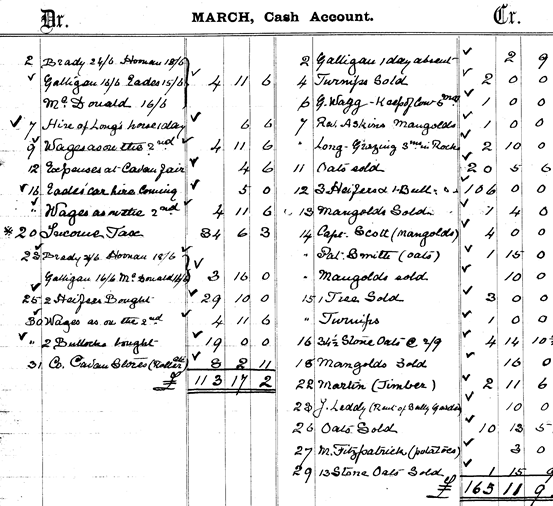 Dr. MARCH, Cash Account. Cr.
2 Brady 24/6 Hoonan 18/6
Galligan 16/6 Eades 15/6 4 11 6
McDonald 16/6
7 Hire of Long's horse 1 day 6 6
9 Wages as on the 2nd 4 11 6
12 Expenses at Cavan Fair 4 6
16 Eades' car hire Coming 5 0
" Wages as on the 2nd 4 11 6
*20 Income Tax 34 6 3
23 Brady Hoonan 18/6
Galligan 16/6 McDonald 16/6 3 16 0
25 2 Heifers Bought 29 10 0
30 Wages as on the 2nd 4 11 6
" 2 Bullocks bought 19 0 0
31 Co. Cavan Stores (Roller) 8 2 11
£ 113 17 2
2 Galligan 1 day absent 2 9
4 Turnips Sold 2 0 0
6 G. Wagg - Keep of Cow 1 0 0
7 Rev. Askins Mangolds 1 0 0
" Long - Grazing 2 10 0
11 Oats sold 20 5 6
12 3 Heifers & 1 Bull 106 0 0
13 Mangolds Sold 1 4 0
14 Capt. Scott (mangolds) 4 0 0
" Pat. Smith (oats) 1 15 0
" Mangolds sold 10 0
15 1 Tree Sold 3 0 0
" Turnips 1 0 0
16 34½ Stone Oats @ 2/9 4 14 10½
18 Mangolds Sold 16 0
22 Martin (Timber) 2 11 6
23 J. Leddy (Rent of Sally Garden) 10 0
26 Oats Sold 10 13 5
27 M. Fitzpatrick (potatoes) 3 0
29 13 Stone Oats Sold 1 15 9
£ 165 11 9